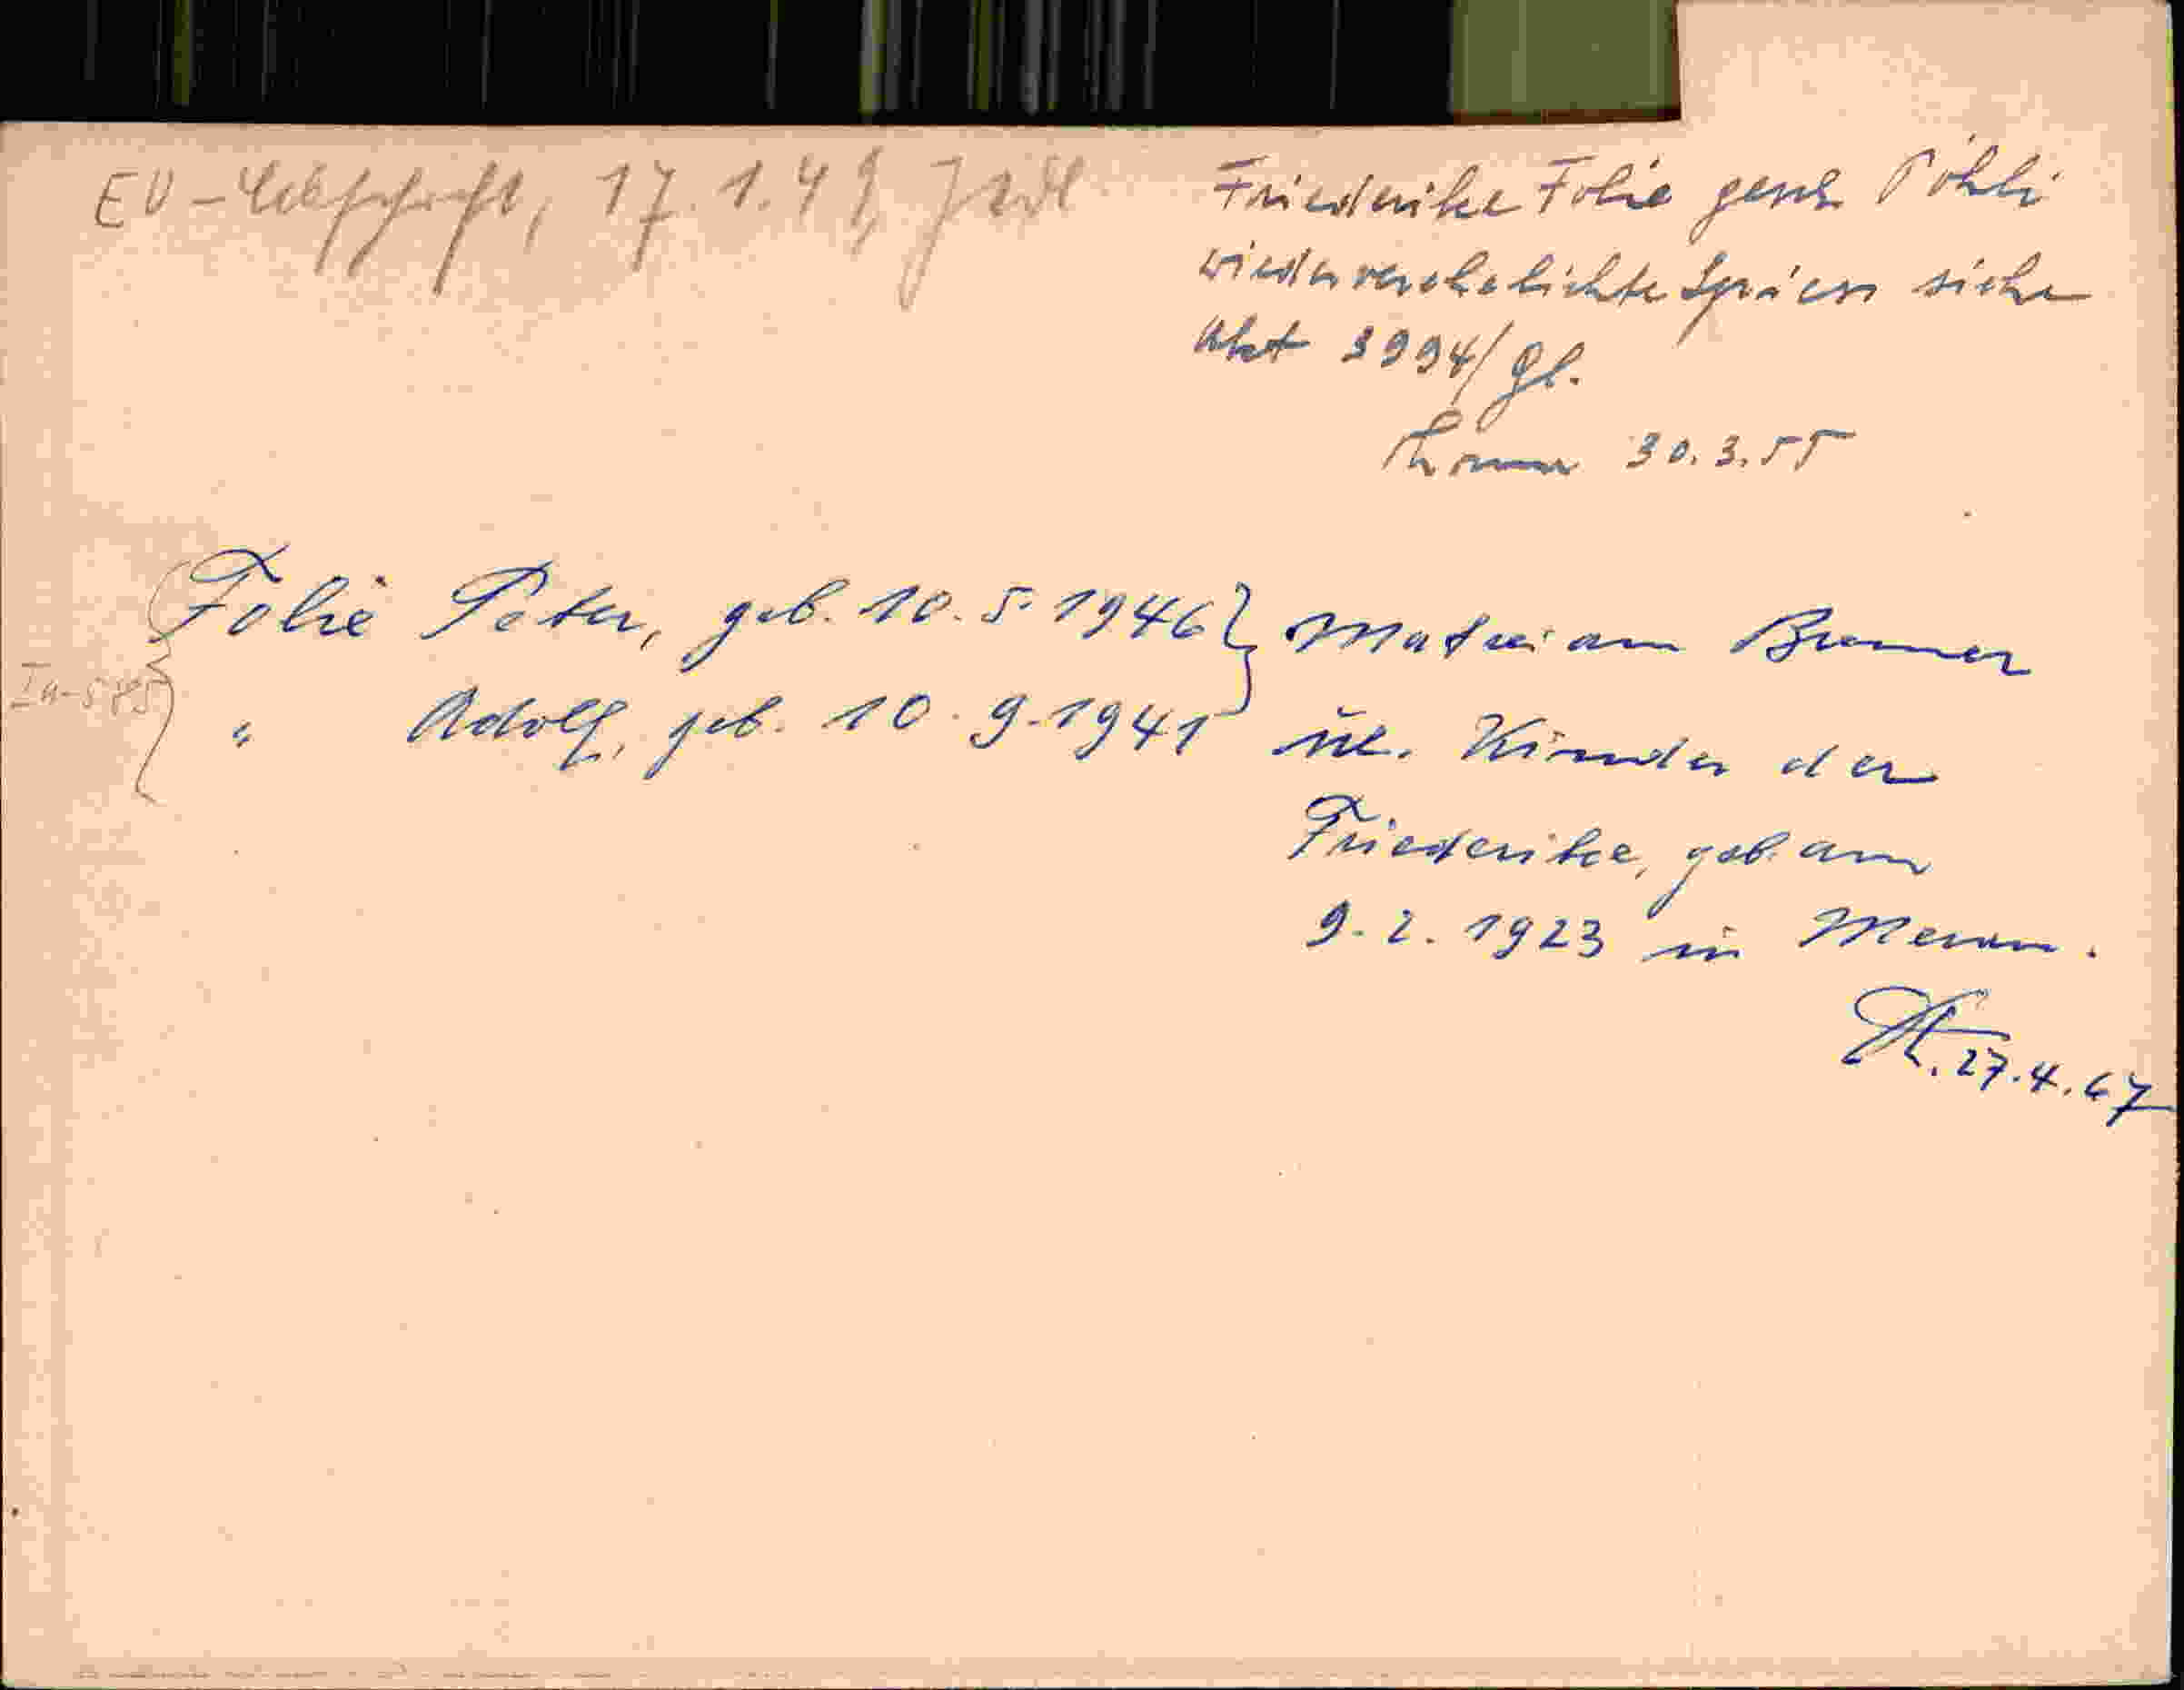 EV-Abschrift, 17.1.49,
Friederike Folie
wiederverehelichte siehe
Akt 3994/Gl.
30.3.55
Folie Peter, geb. 10.5.1946 } Matrei am Brenner
" Adolf, geb. 10.9.1941
Ia-
ue. Kinder der
Friederike, geb. am
9.2.1923 in Meran.
27.4.67